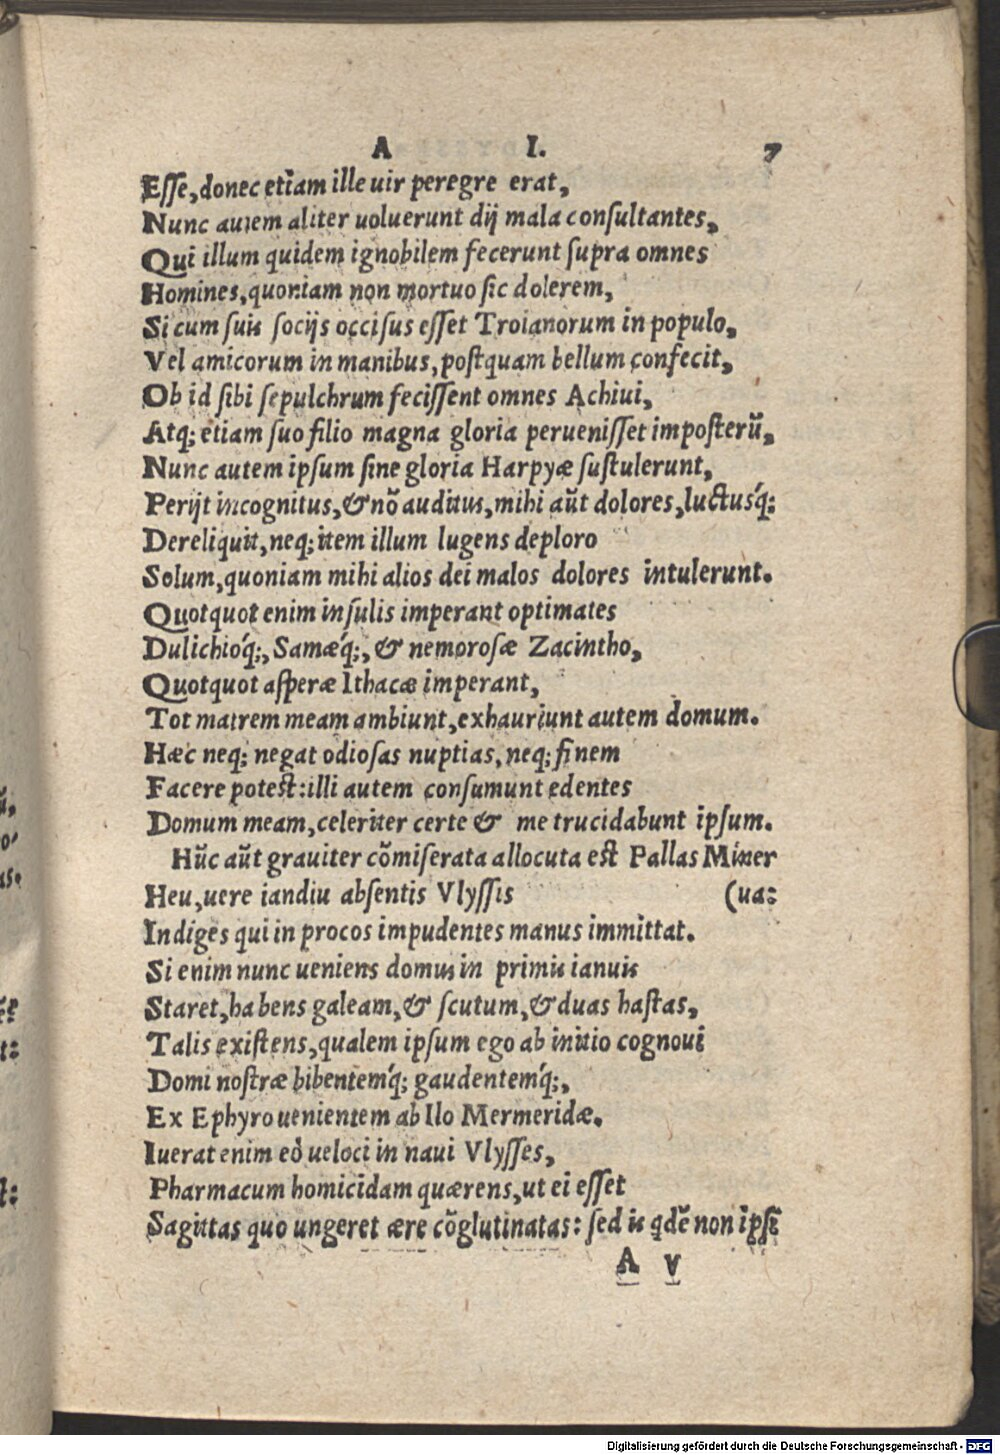 A I. 7
Esse, donec etiam ille uir peregre erat,
Nunc autem aliter uoluerunt dij mala consultantes,
Qui illum quidem ignobilem fecerunt supra omnes
Homines, quoniam non mortuo sic dolerem,
Si cum suis socijs occisus esset Troianorum in populo,
Vel amicorum in manibus, postquam bellum confecit,
Ob id sibi sepulchrum fecissent omnes Achiui,
Atq; etiam suo filio magna gloria peruenisset imposterũ,
Nunc autem ipsum sine gloria Harpyæ sustulerunt,
Perijt incognitus, & nõ auditus, mihi aũt dolores, luctusq́;
Dereliquit, neq; item illum lugens deploro
Solum, quoniam mihi alios dei malos dolores intulerunt.
Quotquot enim insulis imperant optimates
Dulichioq́;, Samæq́;, & nemorosæ Zacintho,
Quotquot asperæ Ithacæ imperant,
Tot matrem meam ambiunt, exhauriunt autem domum.
Hæc neq; negat odiosas nuptias, neq; finem
Facere potest: illi autem consumunt edentes
Domum meam, celeriter certe & me trucidabunt ipsum.
Hũc aũt grauiter cõmiserata allocuta est Pallas Miner
Heu, uere iandiu absentis Vlyssis (ua:
Indiges qui in procos impudentes manus immittat.
Si enim nunc ueniens domus in primis ianuis
Staret, habens galeam, & scutum, & duas hastas,
Talis existens, qualem ipsum ego ab initio cognoui
Domi nostræ bibentemq́; gaudentemq́;,
Ex Ephyro uenientem ab Ilo Mermeridæ.
Iuerat enim eò ueloci in naui Vlysses,
Pharmacum homicidam quærens, ut ei esset
Sagittas quo ungeret ære cõglutinatas: sed is qdẽ non ipsi
A v
Digitalisierung gefördert durch die Deutsche Forschungsgemeinschaft - DFG